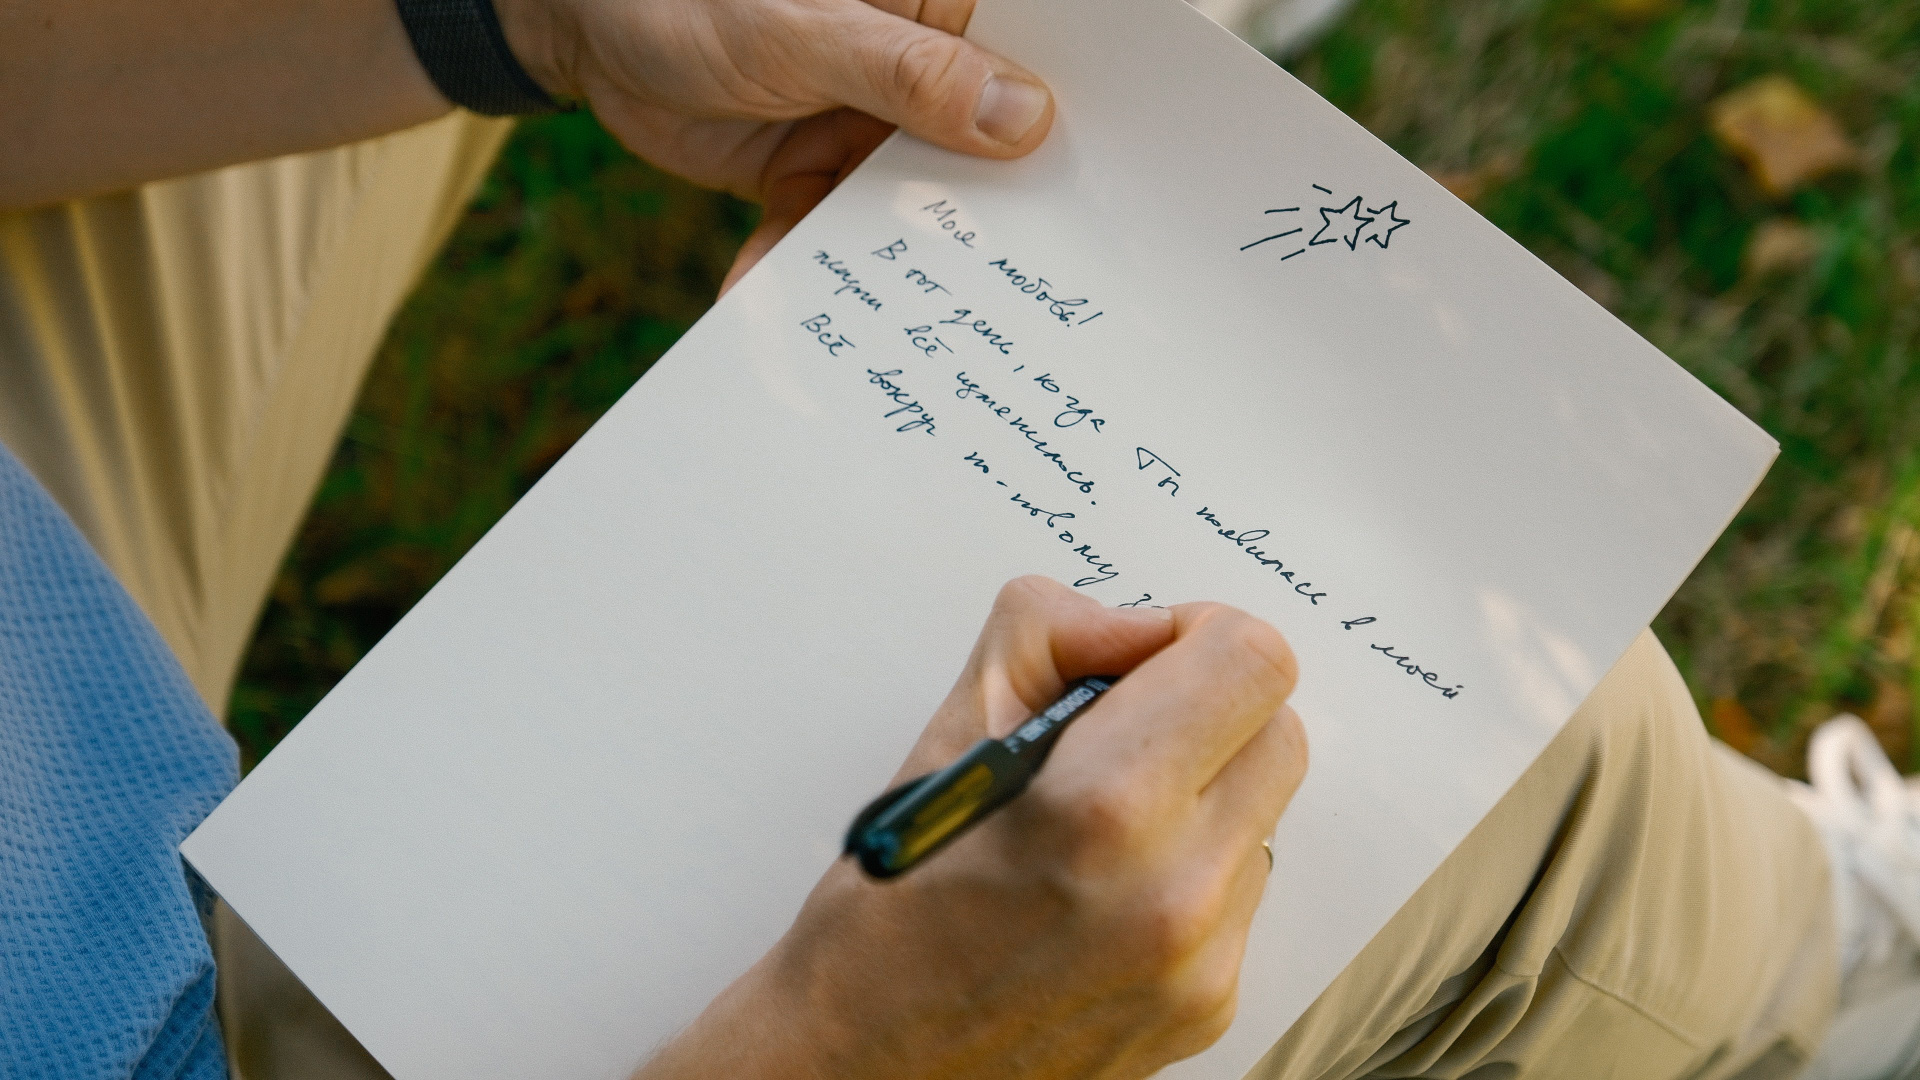 Моя любовь!
В тот день, когда Ты появилась в моей
жизни всё изменилось.
Всё вокруг по-новому за